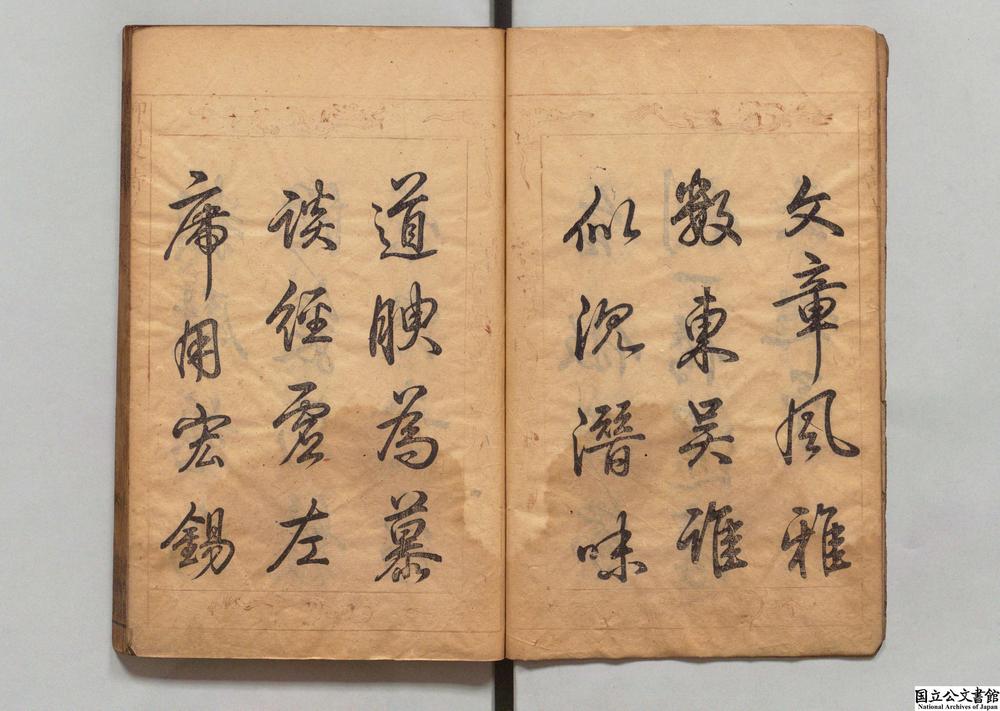 文章風雅
數東吴誰
似沉潛味
道腴為慕
談經虚左
席用宏錫
国立公文書館
National Archives of Japan